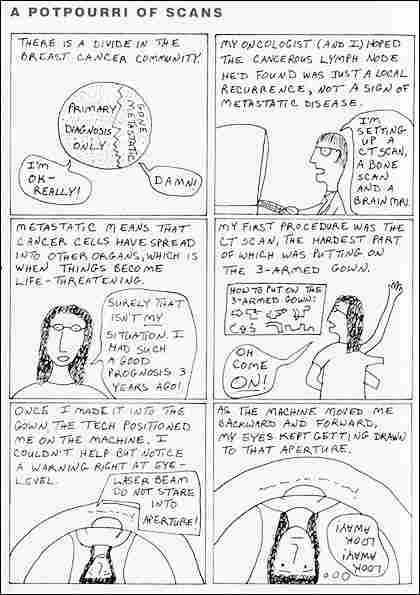 A POTPOURRI OF SCANS
THERE IS A DIVIDE IN THE
BREAST CANCER COMMUNITY.
PRIMARY
DIAGNOSIS
ONLY
GONE
METASTATIC
I'M
OK-
REALLY!
DAMN!
MY ONCOLOGIST (AND I) HOPED
THE CANCEROUS LYMPH NODE
HE'D FOUND WAS JUST A LOCAL
RECURRENCE, NOT A SIGN OF
METASTATIC DISEASE.
I'M
SETTING
UP A
CT SCAN,
A BONE
SCAN
AND A
BRAIN MRI.
METASTATIC MEANS THAT
CANCER CELLS HAVE SPREAD
INTO OTHER ORGANS, WHICH IS
WHEN THINGS BECOME
LIFE-THREATENING.
SURELY THAT
ISN'T MY
SITUATION. I
HAD SUCH
A GOOD
PROGNOSIS 3
YEARS AGO!
MY FIRST PROCEDURE WAS THE
CT SCAN, THE HARDEST PART
OF WHICH WAS PUTTING ON
THE 3-ARMED GOWN.
HOW TO PUT ON THE
3-ARMED GOWN:
OH
COME
ON!
ONCE I MADE IT INTO THE
GOWN, THE TECH POSITIONED
ME ON THE MACHINE. I
COULDN'T HELP BUT NOTICE
A WARNING RIGHT AT EYE-
LEVEL.
LASER BEAM
DO NOT STARE
INTO
APERTURE!
AS THE MACHINE MOVED ME
BACKWARD AND FORWARD,
MY EYES KEPT GETTING DRAWN
TO THAT APERTURE.
LOOK
AWAY!
LOOK
AWAY!